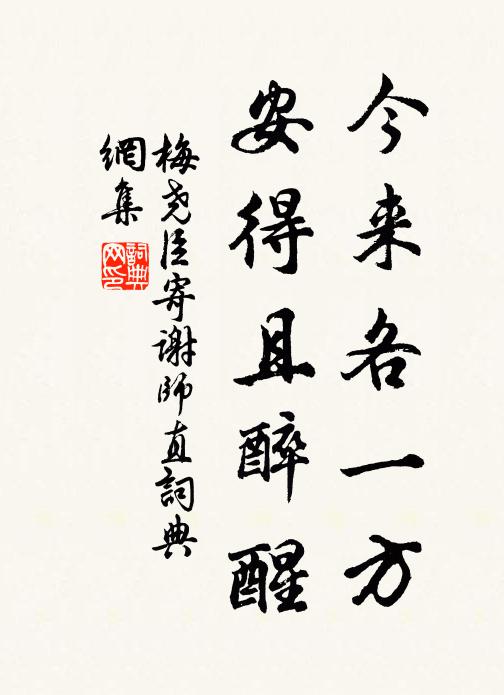 今来各一方
安得且醉醒
梅尧臣寄谢師直詞典
網集
詞典
网印